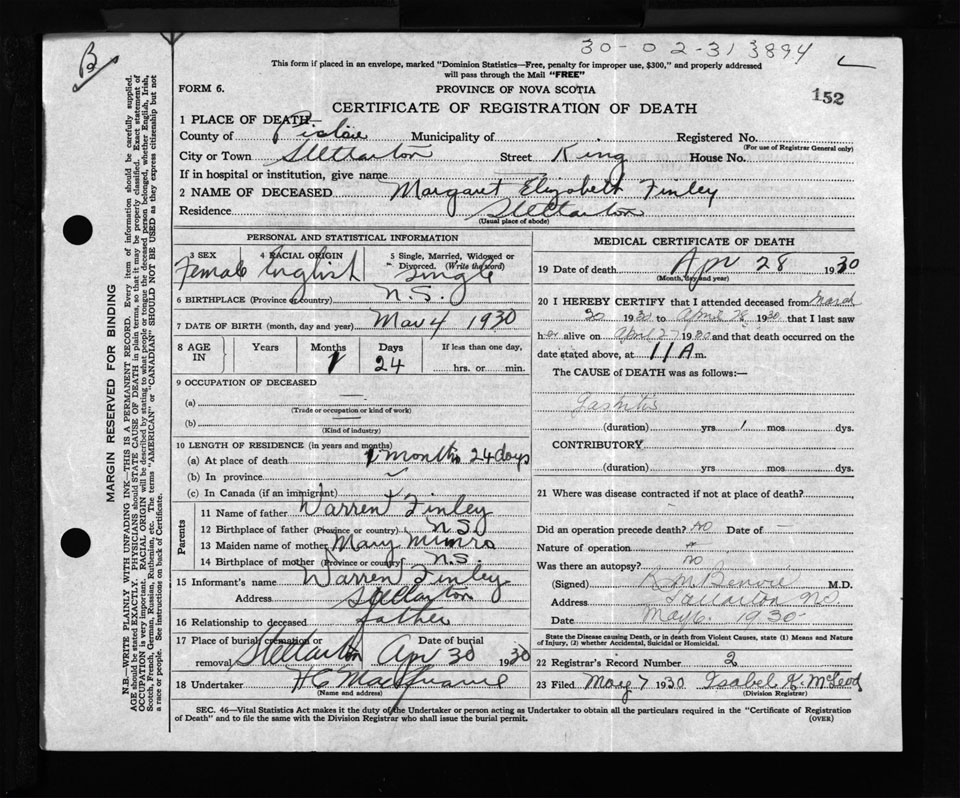 B
30-02-31 3894
This form if placed in an envelope, marked "Dominion Statistics—Free, penalty for improper use, $300," and properly addressed
will pass through the Mail "FREE"
FORM 6.
PROVINCE OF NOVA SCOTIA
152
CERTIFICATE OF REGISTRATION OF DEATH
1 PLACE OF DEATH—
County of Pictou Municipality of Registered No.
(For use of Registrar General only)
City or Town Stellarton Street King House No.
If in hospital or institution, give name
2 NAME OF DECEASED Margaret Elizabeth Finley
Residence Stellarton
(Usual place of abode)
PERSONAL AND STATISTICAL INFORMATION
3 SEX 4 RACIAL ORIGIN 5 Single, Married, Widowed or Divorced. (Write the word)
Female English Single
6 BIRTHPLACE (Province or country) N.S.
7 DATE OF BIRTH (month, day and year) Mar 4 1930
8 AGE IN Years Months Days If less than one day,
1 24 hrs. or min.
9 OCCUPATION OF DECEASED
(a)
(Trade or occupation or kind of work)
(b)
(Kind of industry)
10 LENGTH OF RESIDENCE (in years and months)
(a) At place of death 1 month 24 days
(b) In province
(c) In Canada (if an immigrant)
Parents
11 Name of father Warren Finley
12 Birthplace of father (Province or country) N.S.
13 Maiden name of mother Mary Munro
14 Birthplace of mother (Province or country) N.S.
15 Informant's name Warren Finley
Address Stellarton
16 Relationship to deceased father
17 Place of burial, cremation or removal Stellarton Date of burial Apr 30 1930
18 Undertaker H C
(Name and address)
MEDICAL CERTIFICATE OF DEATH
19 Date of death Apr 28 1930
(Month, day and year)
20 I HEREBY CERTIFY that I attended deceased from March
20 1930 to April 28 1930 that I last saw
her alive on April 27 1930 and that death occurred on the
date stated above, at 11 A m.
The CAUSE of DEATH was as follows:—
(duration) yrs. 1 mos dys.
CONTRIBUTORY
(duration) yrs. mos. dys.
21 Where was disease contracted if not at place of death?
Did an operation precede death? no Date of —
Nature of operation
Was there an autopsy? no
(Signed) M.D.
Address Stellarton N.S.
Date May 6. 1930-
State the Disease causing Death, or in death from Violent Causes, state (1) Means and Nature
of Injury, (2) whether Accidental, Suicidal or Homicidal.
22 Registrar's Record Number 2
23 Filed May 7 1930 Isabel K. McLeod
(Division Registrar)
SEC. 46—Vital Statistics Act makes it the duty of the Undertaker or person acting as Undertaker to obtain all the particulars required in the "Certificate of Registration
of Death" and to file the same with the Division Registrar who shall issue the burial permit.
(OVER)
MARGIN RESERVED FOR BINDING
N.B.—WRITE PLAINLY WITH UNFADING INK—THIS IS A PERMANENT RECORD. Every item of information should be carefully supplied.
AGE should be stated EXACTLY. PHYSICIANS should STATE CAUSE OF DEATH in plain terms, so that it may be properly classified. Exact statement of
OCCUPATION is very important. RACIAL ORIGIN will be described by stating to what people or tongue the deceased person belonged, whether English, Irish,
Scotch, French, German, Russian, Ruthenian, etc. The terms "AMERICAN" or "CANADIAN" SHOULD NOT BE USED as they express citizenship but not
a race or people. See instructions on back of Certificate.